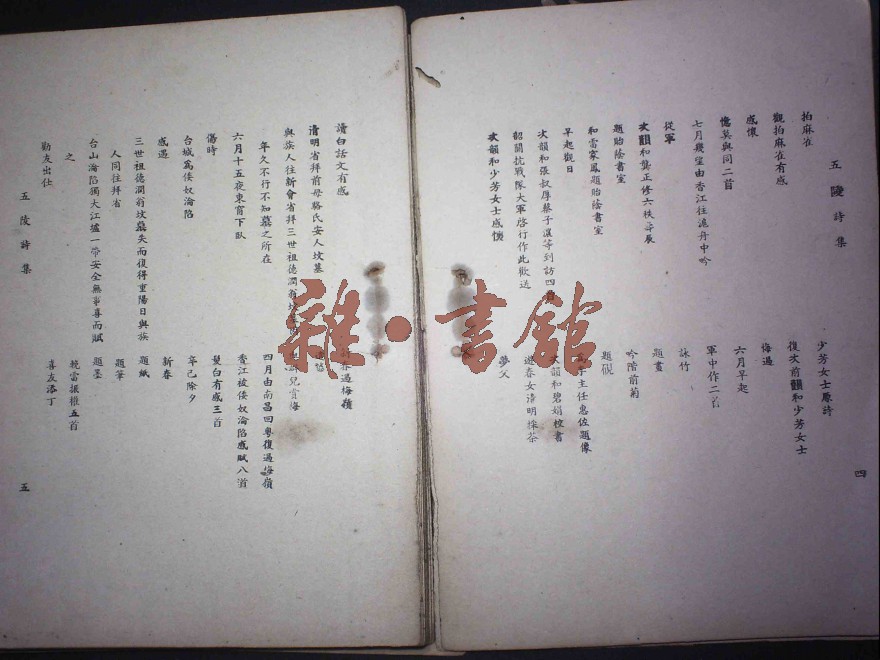 五陵詩集
四
拍麻雀
觀拍麻雀有感
感懷
憶莫與同二首
七月幾望由香江往滬舟中吟
從軍
次韻和龔正修六秩壽辰
題貽蔭書室
和雷家鳳題貽蔭書室
早起觀日
次韻和張叔厚蔡子灝等到訪四首
韶關抗戰隊大軍啓行作此歡送
次韻和少芳女士感懷
少芳女士原詩
復次前韻和少芳女士
悔過
六月早起
軍中作二首
詠竹
題畫
吟階前菊
題硯
李主任惠佐題像
次韻和碧娟校書
遊春女清明採茶
夢父
讀白話文有感
清明省拜前母駱氏安人坟墓
與族人往新會省拜三世祖德澗翁坟
年久不行不知墓之所在
六月十五夜東窗下臥
傷時
台城為倭奴淪陷
感遇
三世祖德澗翁坟墓失而復得重陽日與族
人同往拜省
台山淪陷獨大江墟一帶安全無事喜而賦
之
勸友出仕
春過梅嶺
四月由南昌回粵復過梅嶺
香江被倭奴淪陷感賦八首
髮白有感三首
年已除夕
新春
題紙
題筆
題墨
輓雷振維五首
喜友添丁
五陵詩集
五
雜·書館